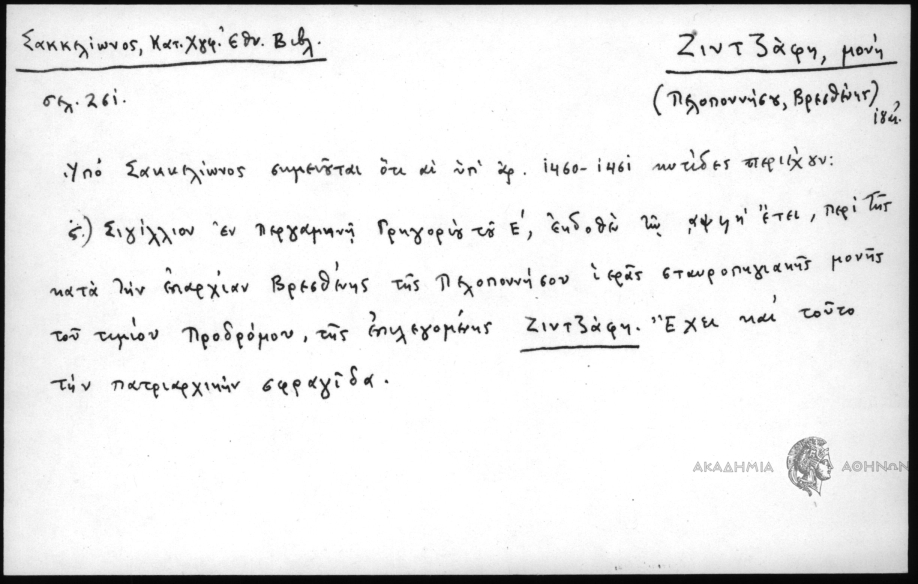 Σακκελίωνος, Κατ. Χγφ. Ἐθν. Βιβλ.
Ζιντζὰφη, μονή
σελ. 261.
(Πελοποννήσου, Βρεσθένης)
Ὑπό Σακκελίωνος σημειοῦται ὅτι αἱ ὑπ' ἀρ. 1460-1461 κυτίδες περιέχουν:
ς.) Σιγίλλιον ἐν περγαμηνῇ Γρηγορίου τοῦ Ε', ἐκδοθὲν τῷ ͵αψϟη' ἔτει, περί τῆς
κατὰ τὴν ἐπαρχίαν Βρεσθένης τῆς Πελοποννήσου ἱερᾶς σταυροπηγιακῆς μονῆς
τοῦ τιμίου Προδρόμου, τῆς ἐπιλεγομένης Ζιντζάφη. Ἔχει καί τοῦτο
τὴν πατριαρχικὴν σφραγῖδα.
ΑΚΑΔΗΜΙΑ ΑΘΗΝΩΝ